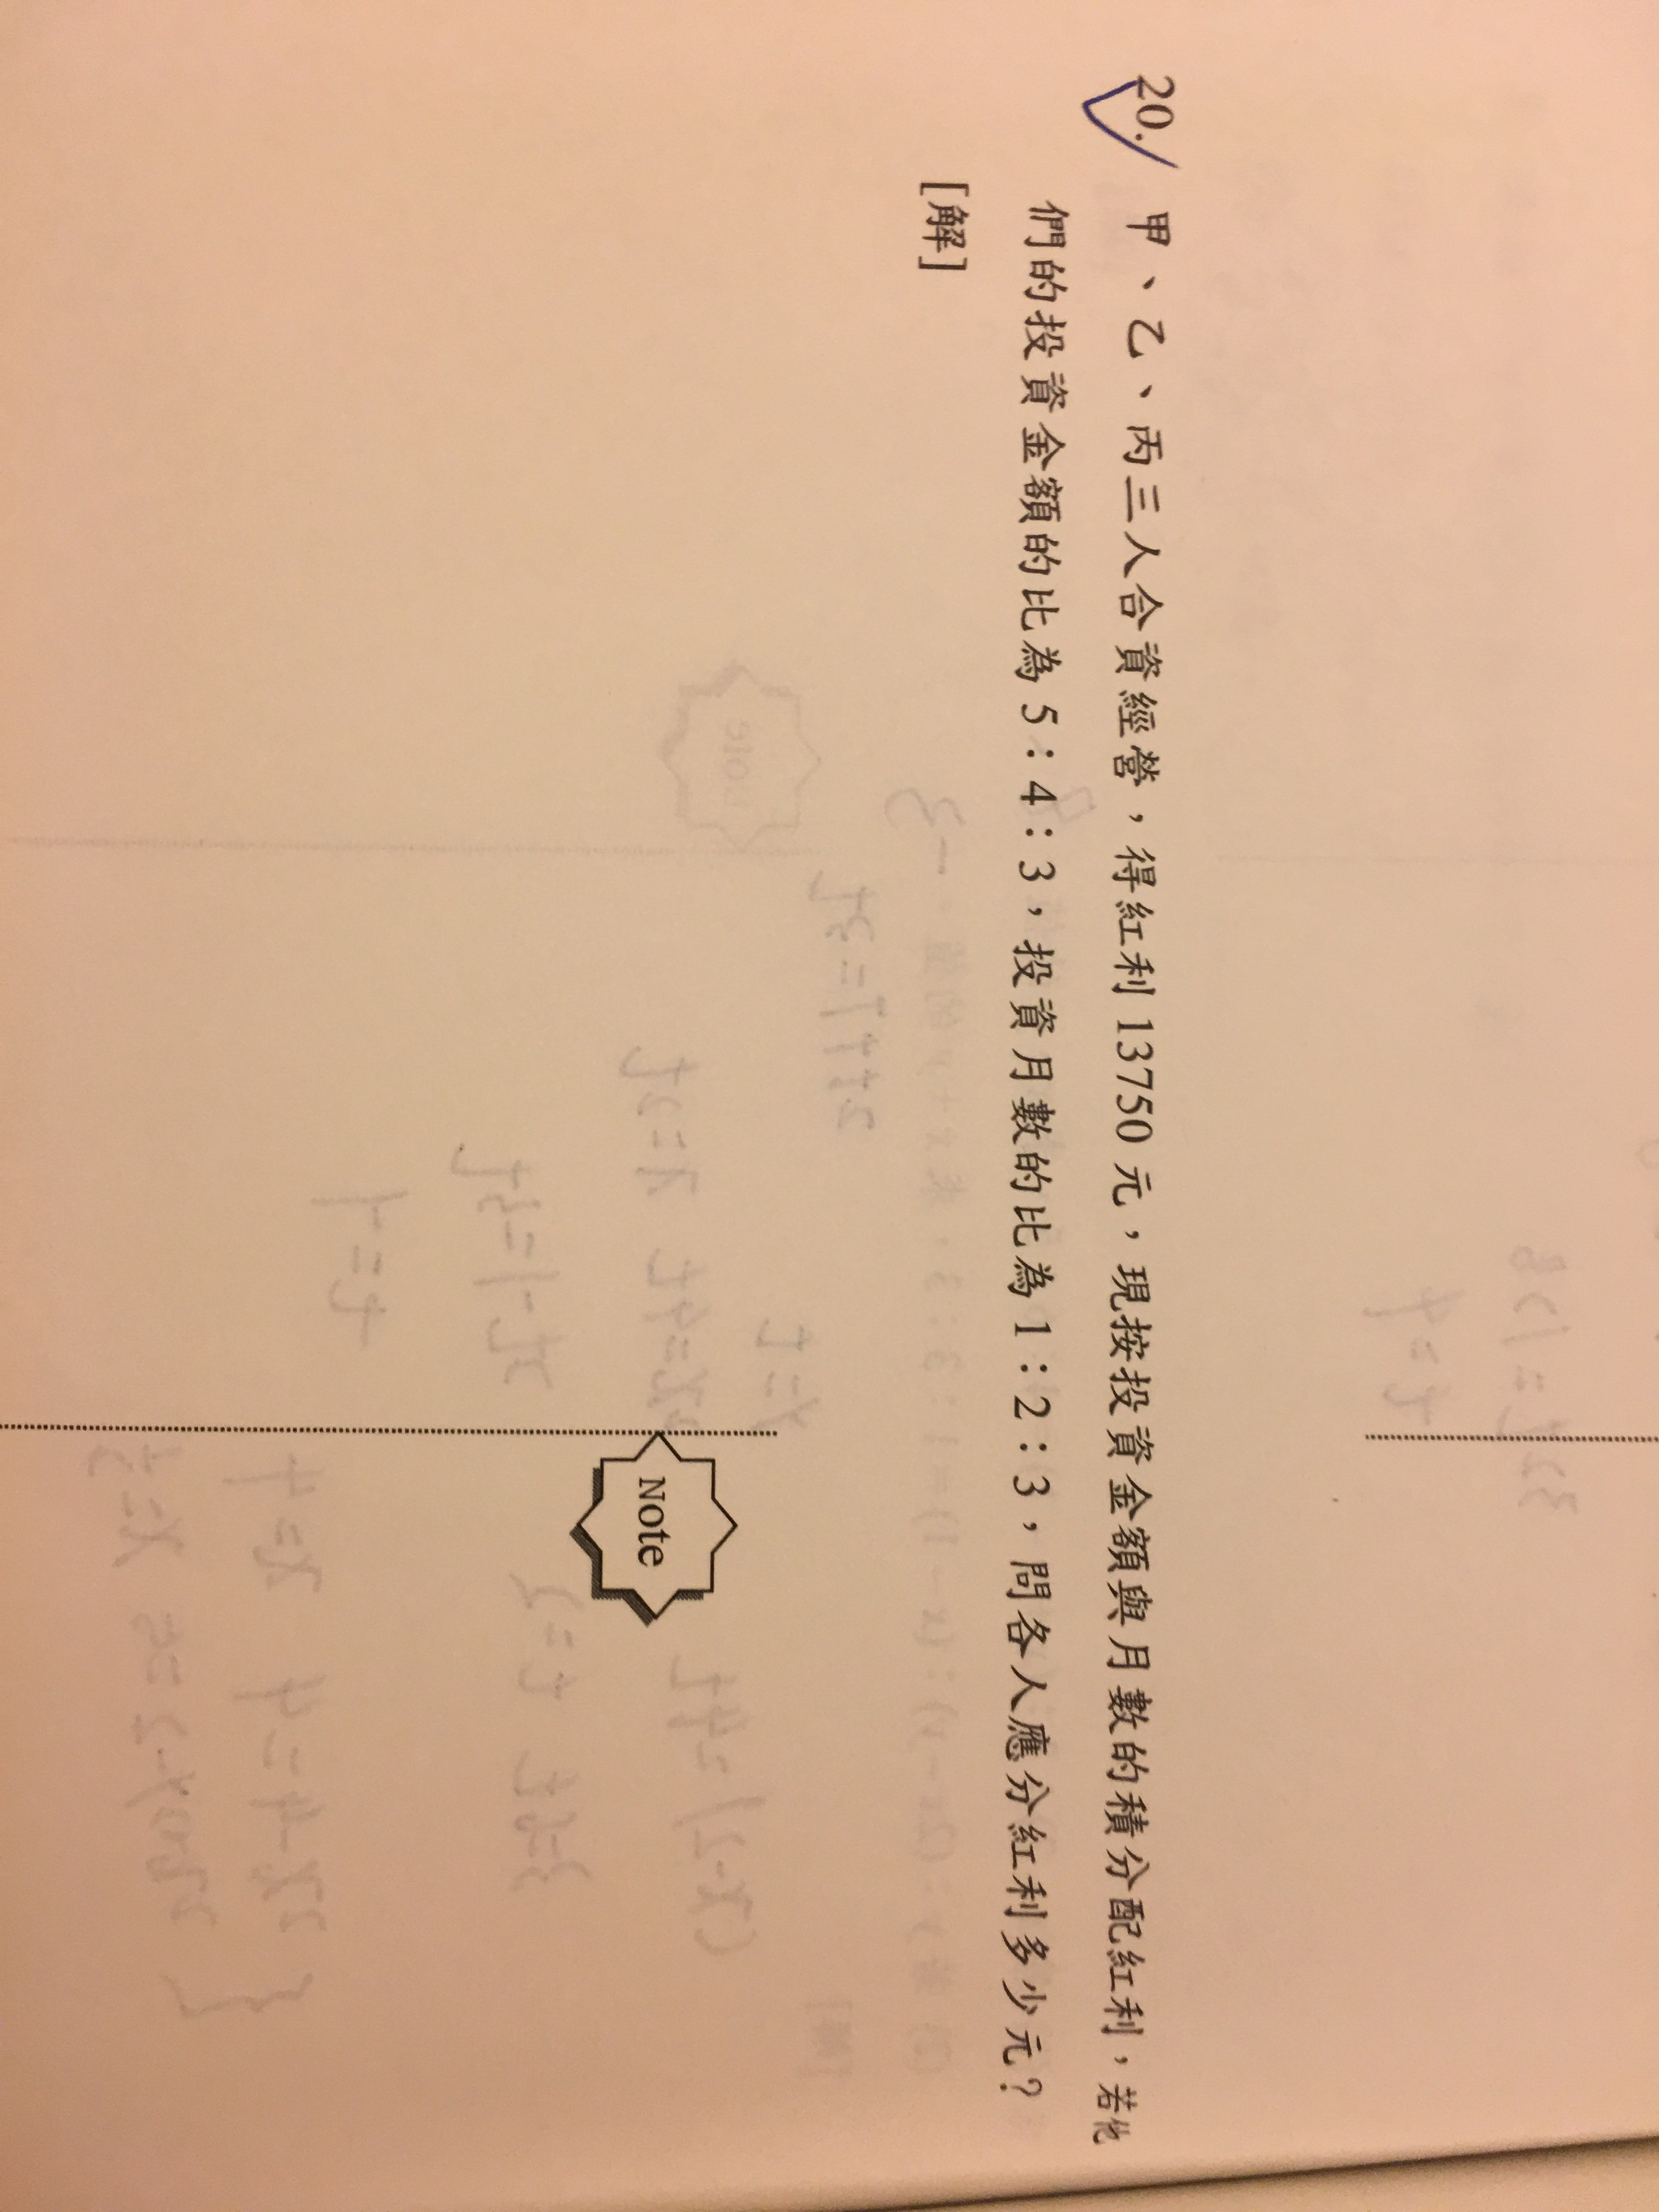 20. 甲、乙、丙三人合資經營，得紅利 13750 元，現按投資金額與月數的積分配紅利，若他
們的投資金額的比為 5：4：3，投資月數的比為 1：2：3，問各人應分紅利多少元？
[解]
Note